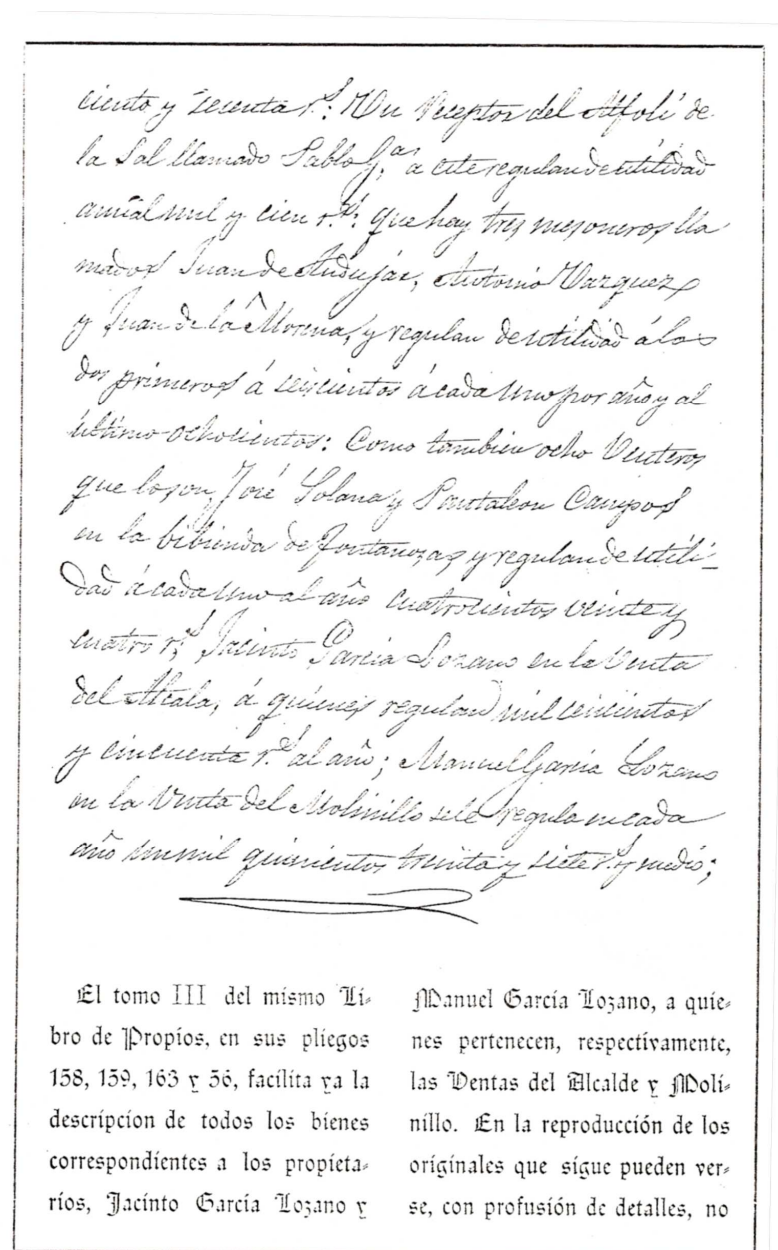 ciento y sesenta r.s: Un Receptor del Alfolí de
la Sal llamado Pablo G.a, a este regulan de utilidad
anual mil y cien r.s: que hay tres mesoneros lla-
mados Juan de Andujar, Antonio Vazquez
y Juan de la Morena, y regulan de utilidad á los
dos primeros á seiscientos á cada uno por año y al
último ochocientos: Como tambien ocho Venteros
que lo son, José Solana y Pantaleon Campos
en la bibienda de Fontanosas y regulan de utili-
dad á cada uno al año cuatrocientos veinte y
cuatro r.s, Jacinto Garcia Lozano en la Venta
del Alcala, á quienes regulan mil seiscientos
y cincuenta r.s al año; Manuel Garcia Lozano
en la Venta del Molinillo se le regula en cada
año un mil quinientos treinta y siete r.s y medio;
El tomo III del mismo Li-
bro de Propios, en sus pliegos
158, 159, 163 y 56, facilita ya la
descripcion de todos los bienes
correspondientes a los propieta-
rios, Jacinto García Lozano y
Manuel García Lozano, a quie-
nes pertenecen, respectivamente,
las Ventas del Alcalde y Moli-
nillo. En la reproducción de los
originales que sigue pueden ver-
se, con profusión de detalles, no